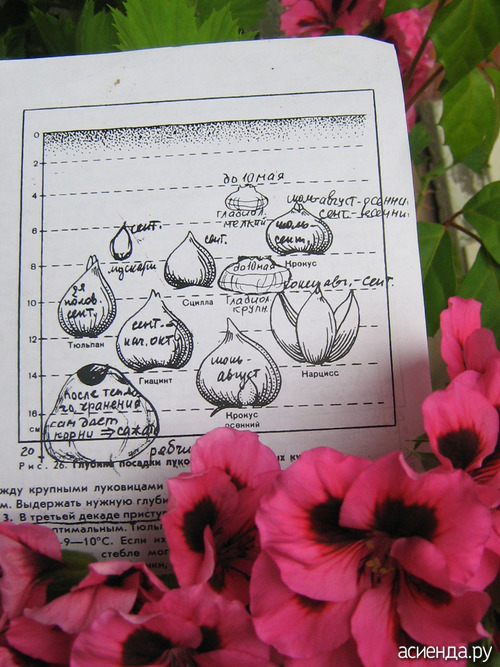 0
2
4
6
8
10
12
14
16
см
20
до 10 мая
гладиол.
мелкий
июль-август-осенни.
сент.-весенни.
июль
сент.
Крокус
сент.
мускари
сент.
Сцилла
до 10 мая
Гладиол.
крупн.
конец авг.-сент.
Нарцисс
2я
полов.
сент.
Тюльпан
сент.-
нач. окт.
Гиацинт
июль-
август
Крокус
осенний
после тепло
го хранения
сам дает
корни ⇒ сажа
рябчи
Рис. 26. Глубина посадки луко
жду крупными луковицами
м. Выдержать нужную глуби
3. В третьей декаде присту
птимальным. Тюль
–9—10°С. Если их
стебле мо
асиенда.ру